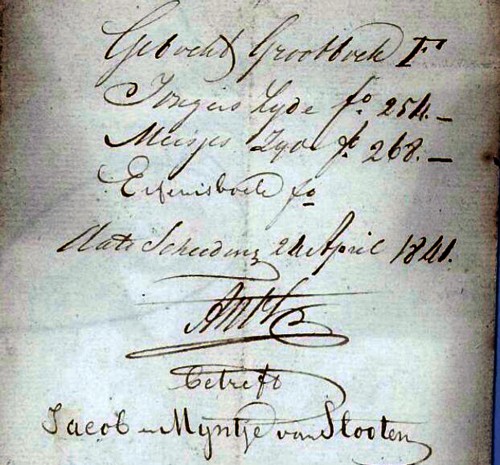 Geboekt Grootboek F
Jongens Zyde fo 254.–
Meisjes Zyde fo 268.–
Erfenisboek fo
Acte Scheeding 24 April 1841.
betreft
Jacob en Myntje van Slooten